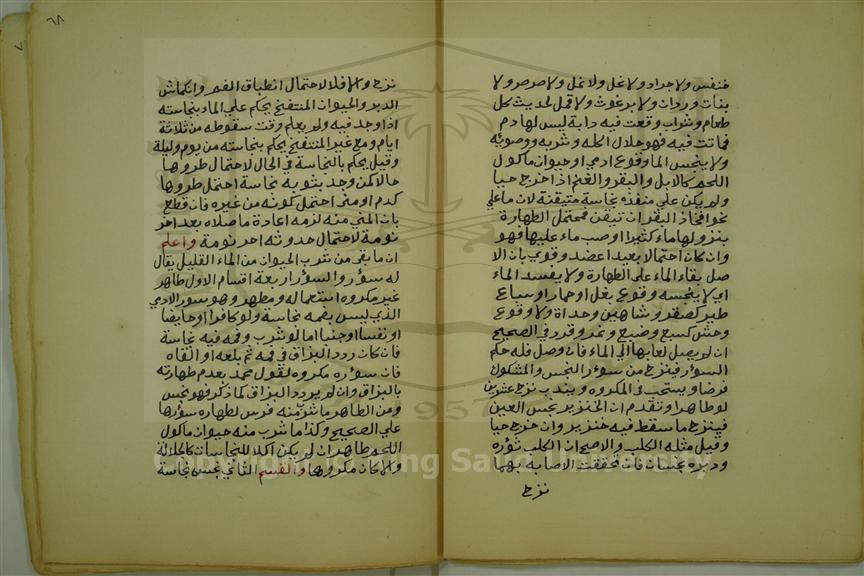 خنفس ولا جراد ولا نحل ولا نمل ولا صرصر ولا
بنات وردان ولا برغوث ولا قمل لحديث كل
طعام وشراب وقعت فيه دابة ليس لها دم
فماتت فيه فهو حلال اكله وشربه ووضوئه
ولا ينجس الما وقوع ادمي او حيوان ماكول
اللحم كالابل والبقر والغنم اذا خرج حيا
ولم يكن علي منفذه نجاسة متيقنة لان ما علي
نحو افخاذ البقر ان تيقن فمحتمل الطهارة
بنزولها ماء كثيرا او صب ماء عليها فهو
وان كان احتمالا بعيدا عضد وقوي بان الا
صل بقاء الماء علي الطهارة ولا يفسد الماء
اي لا ينجسه وقوع بغل او حمار او سباع
طير كصقر وشاهين وحداة ولا وقوع
وحش كسبع وضبع ونمر وقرد في الصحيح
ان لم يصل لعابها الي الماء فان وصل فله حكم
السؤر فينزح من سؤر النجس والمشكول
فرضا ويستحب في المكروه ويندب نزح عشرين
لو طاهرا وتقدم ان الخنزير نجس العين
فينزح ما سقط فيه خنزير وان خرج حيا
وقيل مثله الكلب والاصح ان الكلب سؤره
ودبره نجسان فان تحققت الاصابة بهما
نزح
٦٨
نزح والا فلا لاحتمال انطباق الفم وانكماش
الدبر والحيوان المنتفخ يحكم علي الماء بنجاسته
اذا وجد فيه ولم يعلم وقت سقوطه من ثلاثة
ايام ومع غير المنتفخ يحكم بنجاسته من يوم وليلة
وقيل يحكم بالنجاسة في الحال لاحتمال طروها
حالا كمن وجد بثوبه نجاسة احتمل طروها
كدم او مني احتمل كونه من غيره فان قطع
بان المني منه لزمه اعادة ما صلاه بعد اخر
نومة لاحتمال حدوثه اخر نومة واعلم
ان ما بقي من شرب الحيوان من الماء القليل يقال
له سؤر والسؤر اربعة اقسام الاول طاهر
غير مكروه استعماله ومطهر وهو سور الادمي
الذي ليس بفمه نجاسة ولو كافرا او حايضا
او نفسا او جنبا اما لو شرب وفمه فيه نجاسة
فان كان ردد البزاق في فمه ثم بلعه او القاه
فان سؤره مكروه لقول محمد بعدم طهارته
بالبزاق وان لم يردد البزاق كما ذكر فهو نجس
ومن الطاهر ما شرب منه فرس لطهاره سؤرها
علي الصحيح وكذا ما شرب منه حيوان ماكول
اللحم طاهر ان لم يكن اكلا للنجاسات كالجلالة
والا كان مكروها والقسم الثاني نجس نجاسة
Copyright © King Saud University
1957